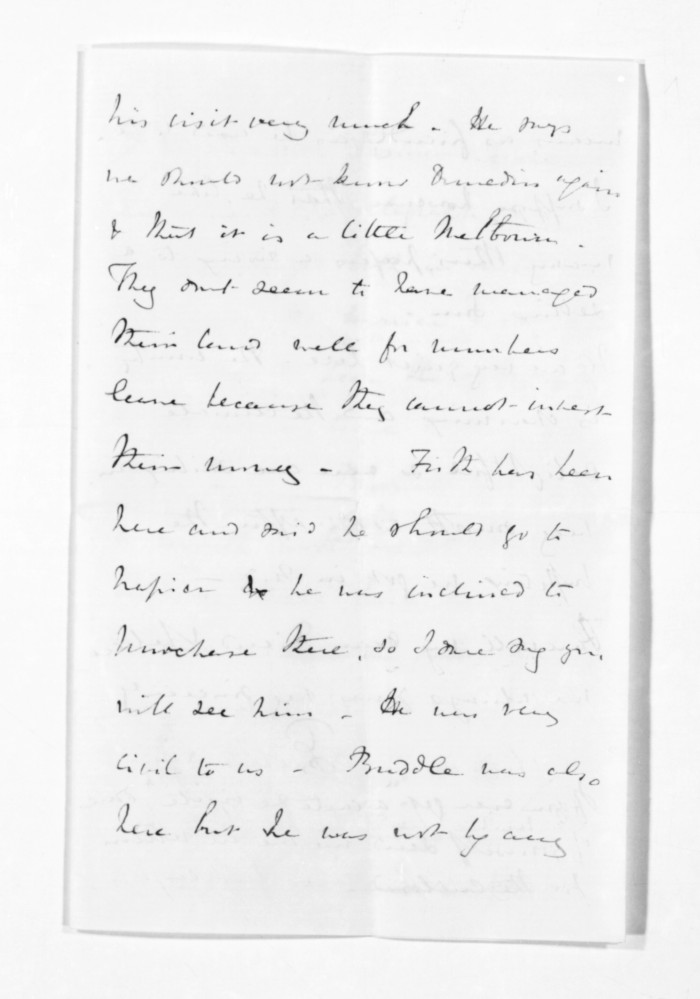 his visit very much. He says
we should not know Dunedin again
& that it is a little Melbourne.
They don't seem to have managed
their land well for numbers
leave because they cannot invest
their money - Firth has been
here and said he should go to
Napier he was inclined to
purchase there, so I dare say you
will see him - He was very
civil to us - Buddle was also
here but he was not by any